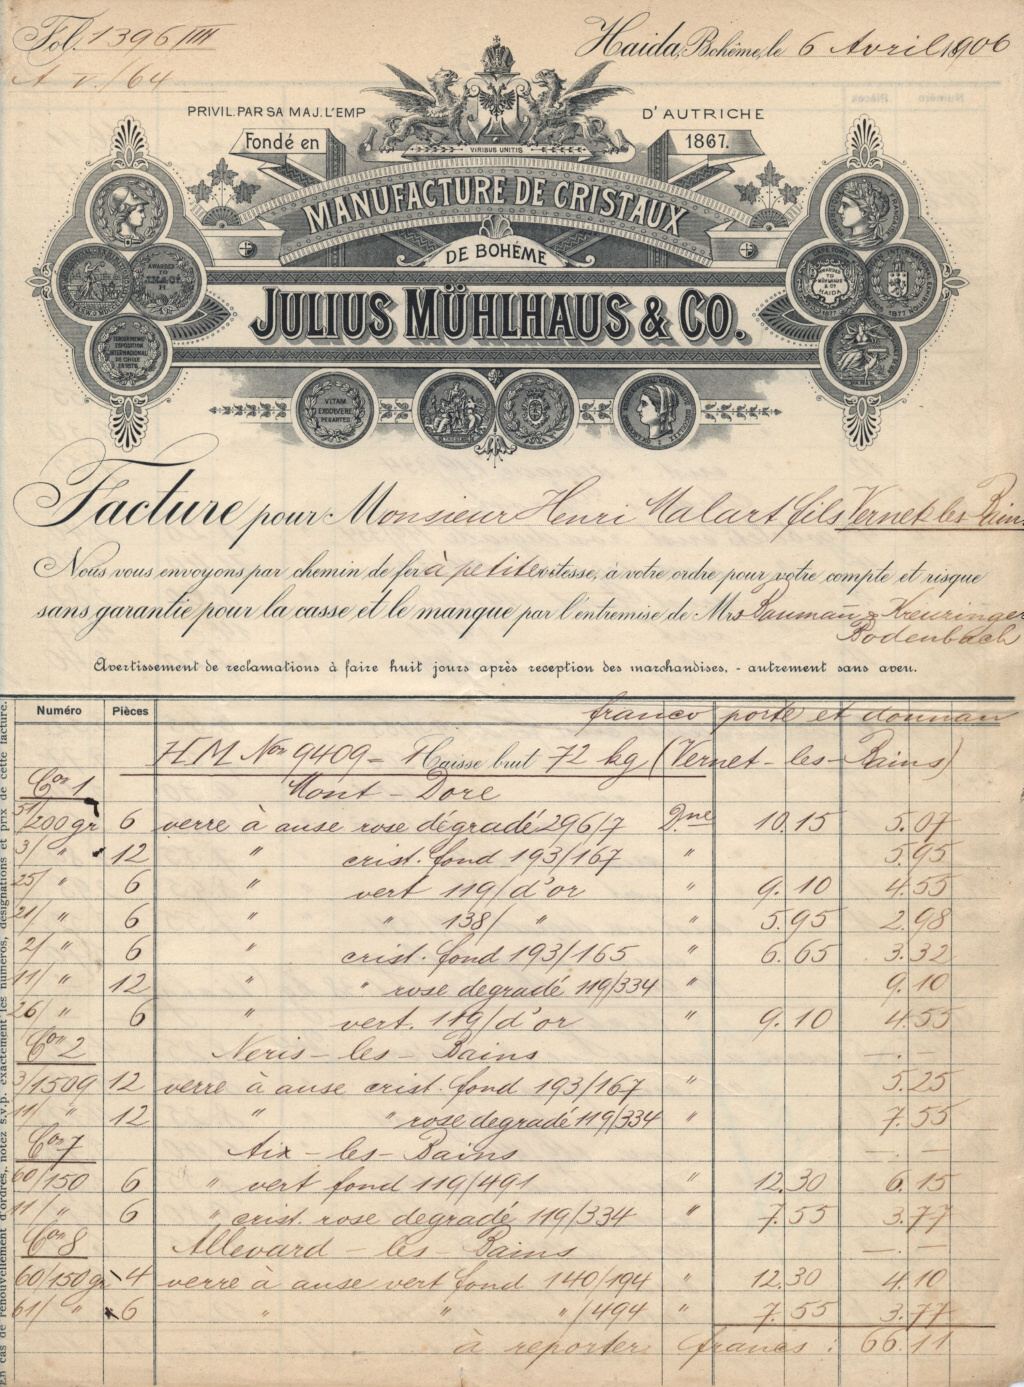 Fol. 1396/III
Haida, Bohême, le 6 Avril 1906
A v./64
PRIVIL. PAR SA MAJ. L'EMP D'AUTRICHE
Fondé en 1867.
VIRIBUS UNITIS
MANUFACTURE DE CRISTAUX
DE BOHÊME
JULIUS MÜHLHAUS & CO.
Facture pour Monsieur Henri Malart fils Vernet les Bains
Nous vous envoyons par chemin de fer à petite vitesse, à votre ordre pour votre compte et risque
sans garantie pour la casse et le manque par l'entremise de Mrs Bauman & Kreuzinger
Bodenbach
Avertissement de reclamations à faire huit jours après reception des marchandises, - autrement sans aveu.
En cas de renouvellement d'ordres, notez s.v.p. exactement les numéros, designations et prix de cette facture.
Numéro Pièces franco porte et
HM Nor 9409 = Kaisse brut 72 kg (Vernet-les-Bains)
Con 1 Mont-Dore
51/200 gr 6 verre à anse rose dégradé 296/7 Dne 10.15 5.07
3/ " 12 " crist. fond 193/167 " 5.95
25/ " 6 " vert 119/d'or " 9.10 4.55
21/ " 6 " " 138/ " " 5.95 2.98
2/ " 6 " crist. fond 193/165 " 6.65 3.32
11/ " 12 " " rose degradé 119/334 " 9.10
26/ " 6 " vert. 119/d'or " 9.10 4.55
Con 2 Neris-les-Bains —.—
3/150 g 12 verre à anse crist. fond 193/167 " 5.25
11/ " 12 " " rose degradé 119/334 " 7.55
Con 7 Aix-les-Bains —.—
60/150 6 " vert fond 119/491 " 12.30 6.15
11/ " 6 " crist. rose degradé 119/334 " 7.55 3.77
Con 8 Allevard-les Bains —.—
60/150 gr 4 verre à anse vert fond 140/194 " 12.30 4.10
61/ " 6 " " "/494 " 7.55 3.77
à reporter francs : 66.11